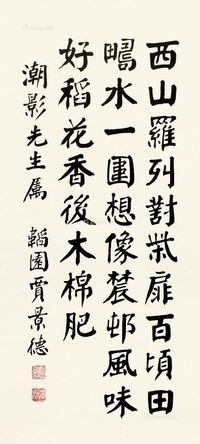 西山羅列對柴扉百頃田
疇水一圍想像農邨風味
好稻花香後木棉肥
潮影先生屬　韜園賈景德